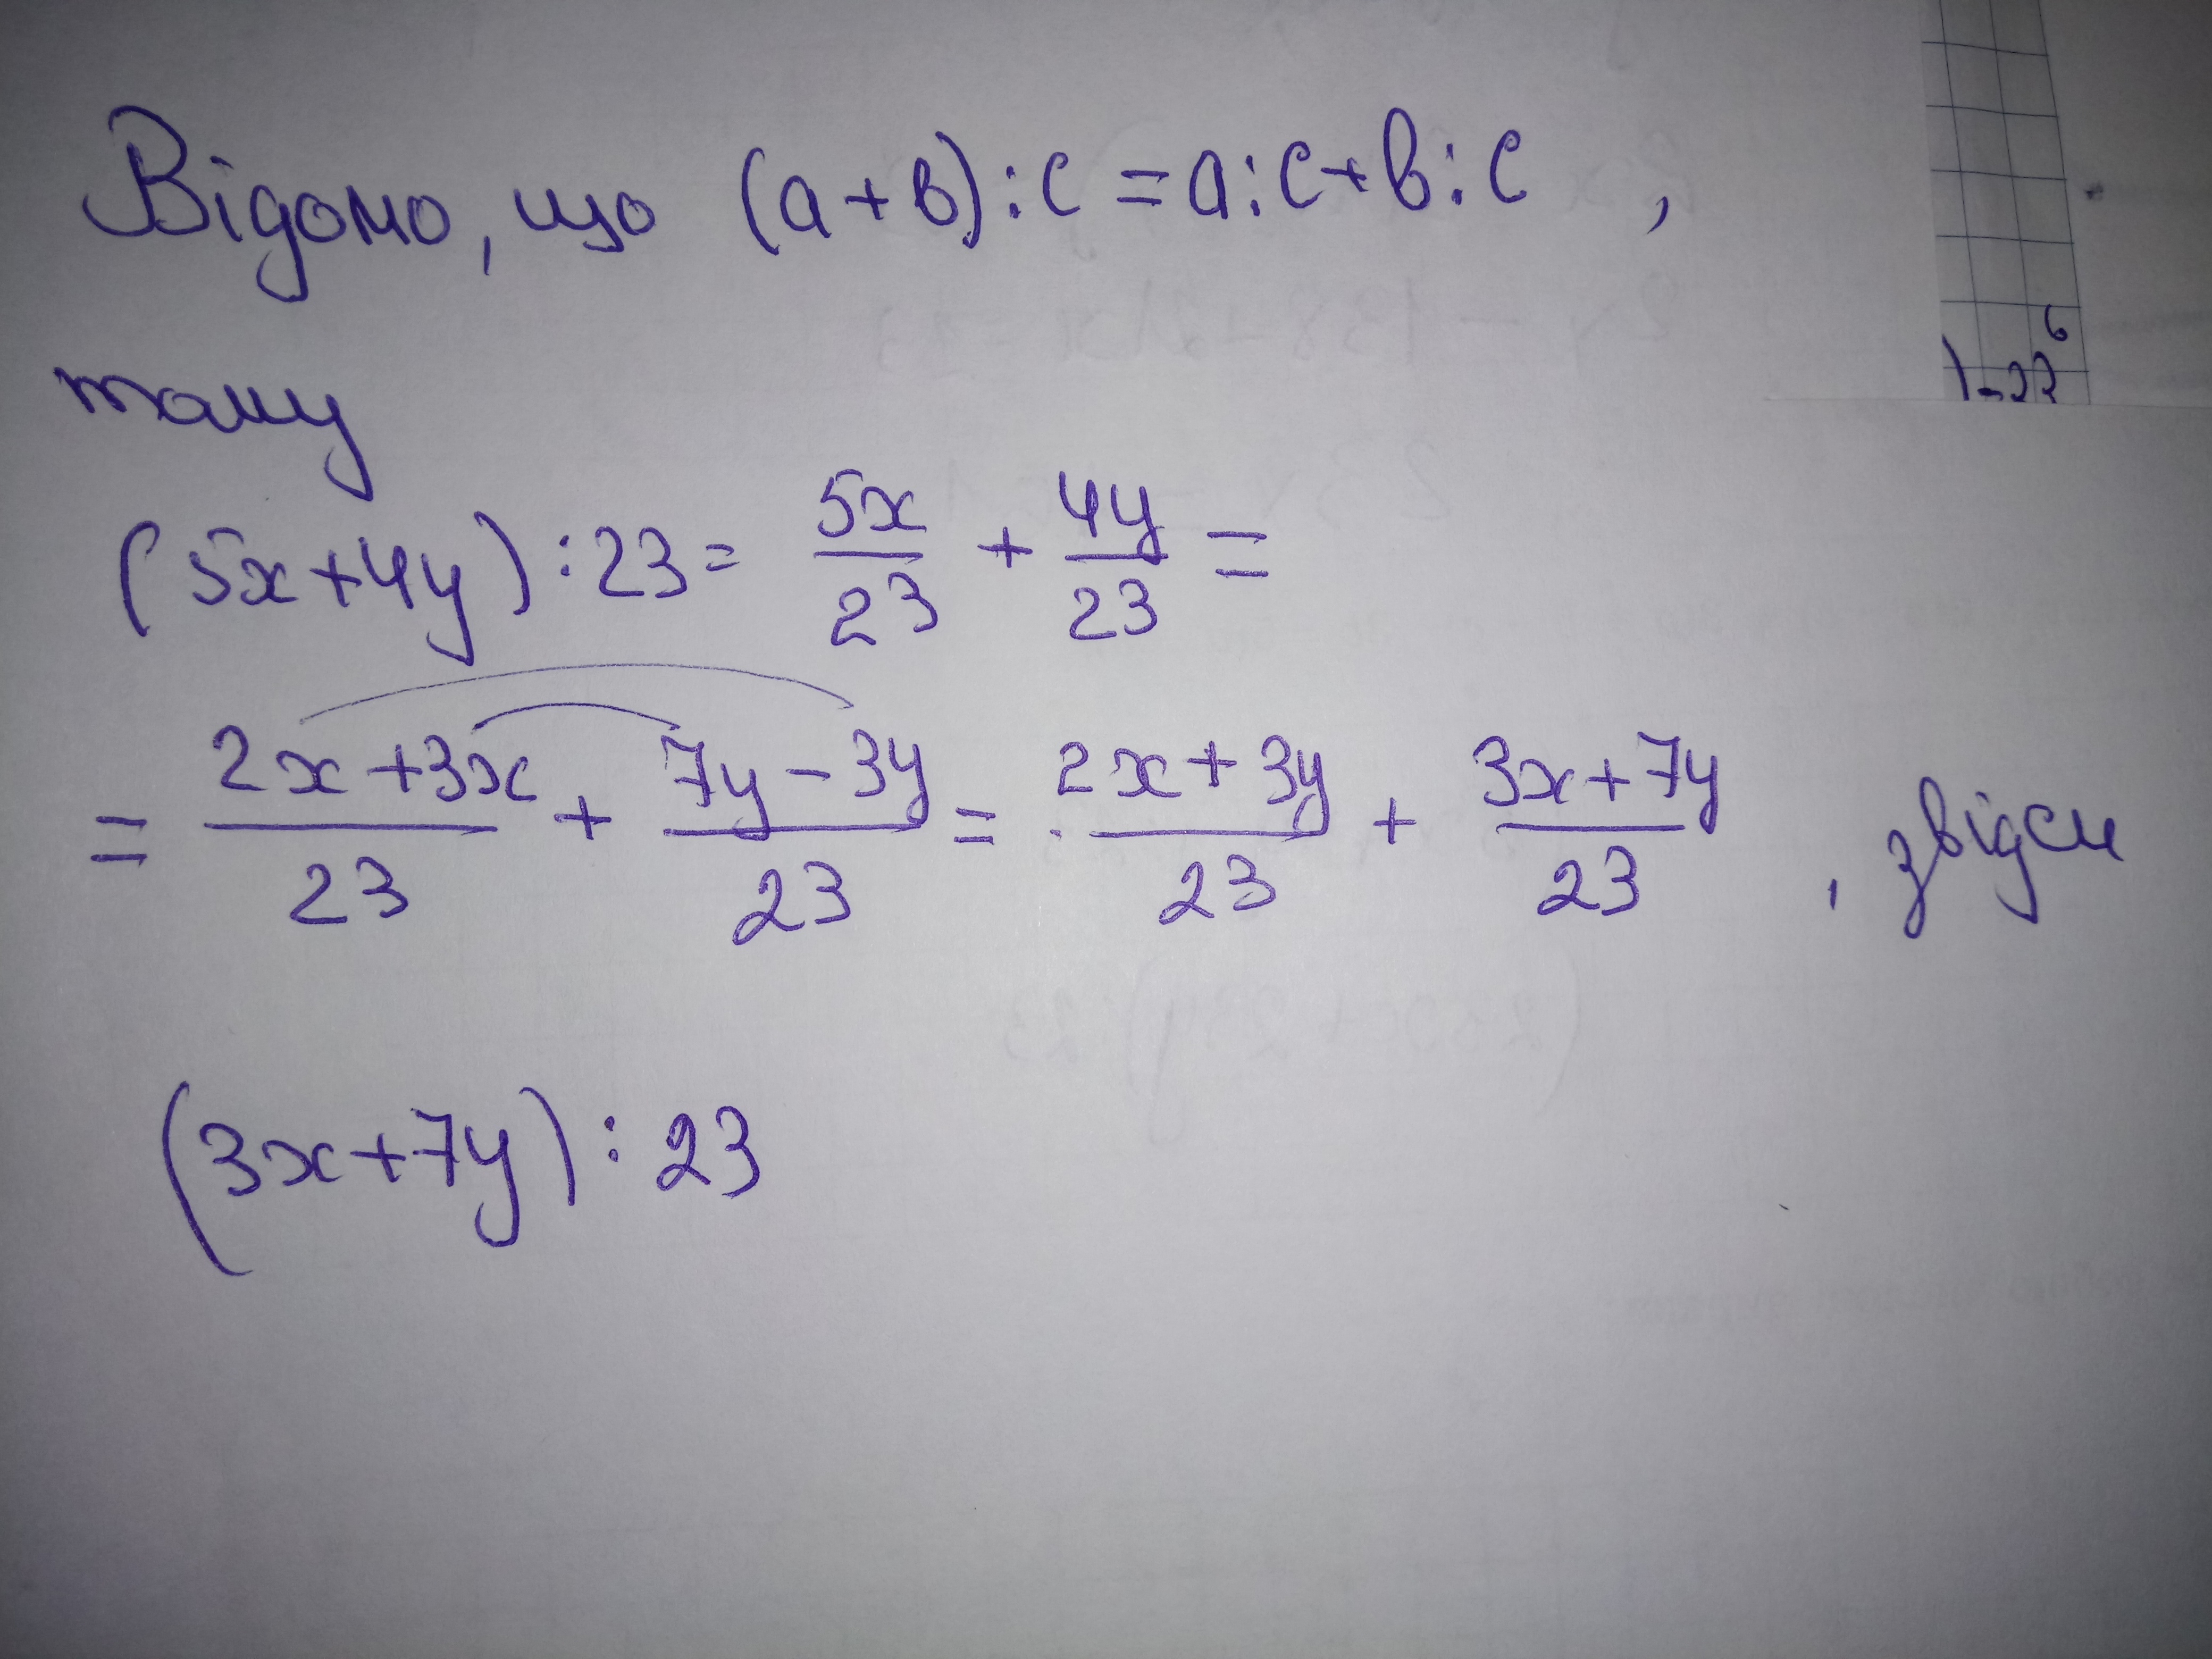 Відомо, що (a+в):c=a:c+в:c ,
тому
(5x+4y):23= 5x/23 + 4y/23 =
= 2x+3x/23 + 7y-3y/23 = 2x+3y/23 + 3x+7y/23 , звідси
(3x+7y):23